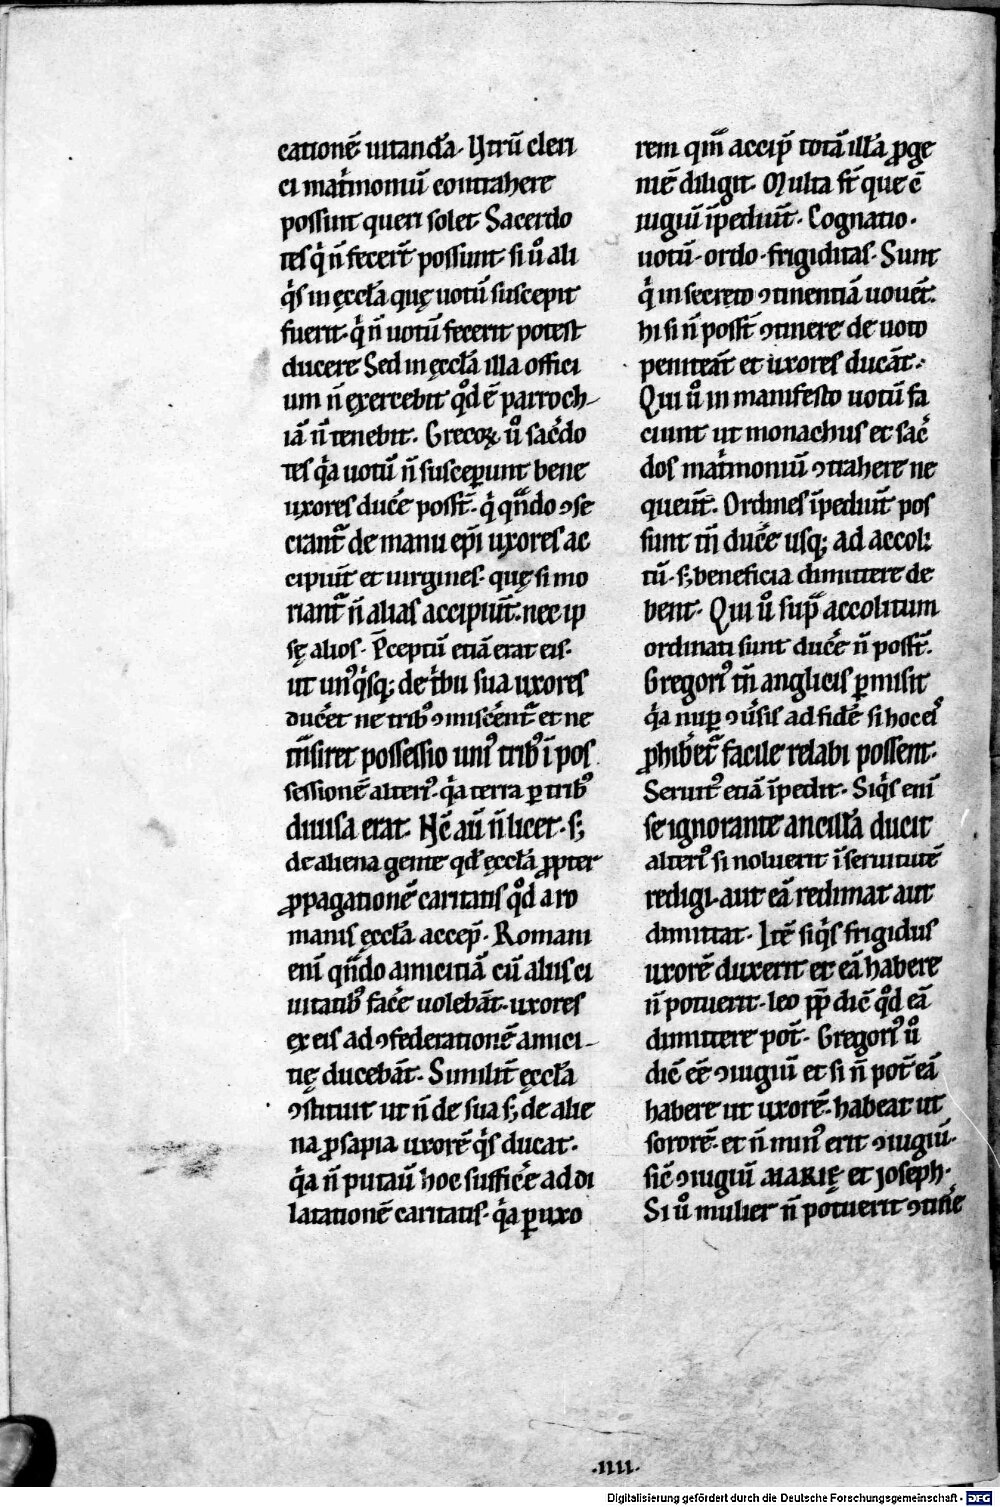 cationē uitandā. Vtrū cleri
ci mat̾moniū contrahere
possint queri solet Sacerdo
tes q̇ n̄ fecer̄t possunt. si u̾o ali
q̇s in ęccl̄a quę uotū suscepit
fuerit. q̇ n̄ uotū fecerit potest
ducere Sed in ęccl̄a illa offici
um n̄ exercebit q̊d ē parroch-
iā n̄ tenebit. Grecoꝝ u̾o sac̾do
tes q̇a uotū n̄ susceꝑunt bene
uxores duc̾e poss̄t. q̇ qn̄do ꝯse
crant᷑ de manu ep̄i uxores ac
cipiūt et uirgines. quę si mo
riant᷑ n̄ alias accipiūt. nec ip
sę alios. P̄ceptū etiā erat eis.
ut unꝰq̇sq; de t̾bu sua uxores
duc̾et ne tribꝰ ꝯmisc̾ent᷑ et ne
t̄nsiret possessio uniꝰ tribꝰ ī pos
sessionē alteriꝰ. q̇a terra ꝑ tribꝰ
diuisa erat. Hc̄ aū n̄ licet. s;
de aliena gente qd̄ ęccl̄a ꝓpter
ꝓpagationē caritatis q̊d a ro
manis ęccl̄a accep̄. Romani
enī qn̄do amicitiā cū aliis ci
uitatibꝰ fac̾e uolebāt. uxores
ex eis ad ꝯfederationē amici-
tię ducebāt. Similit̄ ęccl̄a
ꝯstituit ut n̄ de sua s; de alie
na ꝓsapia uxorē q̇s ducat.
q̇a n̄ putaū hoc suffic̾e ad di
latationē caritatis. q̇a ꝑ uxo
rem qm̄ accip̄ totā illā ꝓge
niē diligit. Multa st̄ que ꝯ
iugiū īpediūt. Cognatio.
uotū. ordo. frigiditas. Sunt
q̇ in secreto ꝯtinentiā uouēt.
hi si n̄ poss̄t ꝯtinere de uoto
peniteāt et uxores ducāt.
Qui u̾o in manifesto uotū fa
ciunt ut monachus et sac̾
dos mat̾moniū ꝯtrahere ne
queūt. Ordines īpediūt pos
sunt tn̄ duc̾e usq; ad accoli
tū. s; beneficia dimittere de
bent. Qui u̾o sup̄ accolitum
ordinati sunt duc̾e n̄ poss̄t.
Gregoriꝰ tn̄ anglicis ꝑmisit
q̇a nuꝑ ꝯu̾sis ad fidē si hoc eiˢ
ꝓhiber̄et᷑ facile relabi possent.
Seruitꝰ etiā īpedit. Siq̇s enī
se ignorante ancillā ducit
alteriꝰ si noluerit ī seruitutē
redigi. aut eā redimat aut
dimittat. Itē siq̇s frigidus
uxorē duxerit et eā habere
n̄ potuerit. leo pp̄ dic̄ q̊d eā
dimittere pot̄. Gregoriꝰ u̾o
dic̄ ēē ꝯiugiū et si n̄ pot̄ eā
habere ut uxorē. habeat ut
sororē. et n̄ minꝰ erit ꝯiugiū.
sic̄ ꝯiugiū MARIĘ et ioseph.
Si u̾o mulier n̄ potuerit ꝯtin̾e
.iiii.
Digitalisierung gefördert durch die Deutsche Forschungsgemeinschaft - DFG